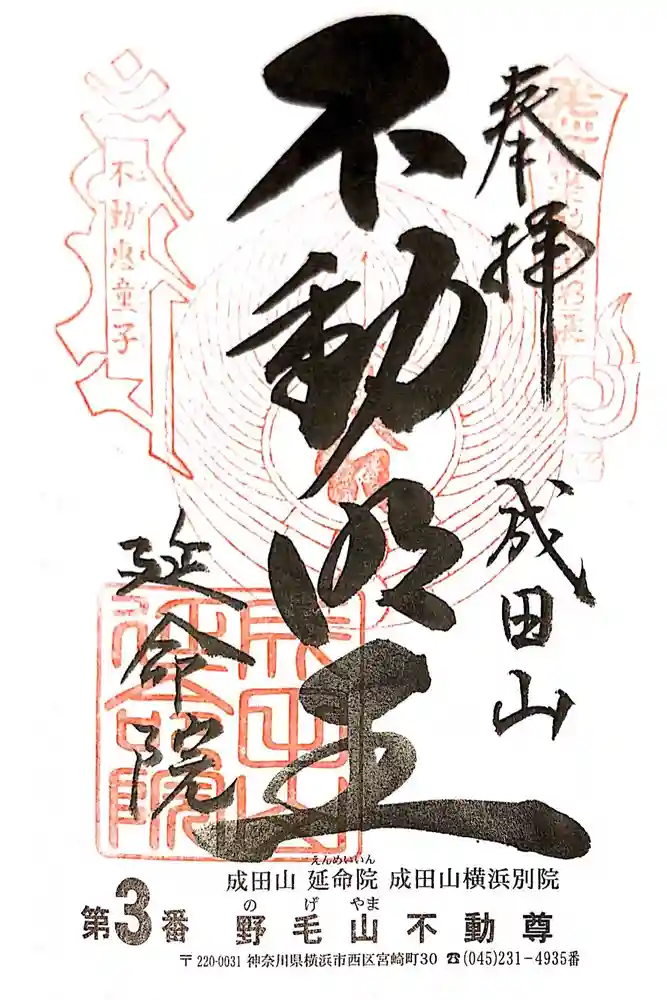 奉拝
成田山
不動明王
延命院
不動恵童子
成田山
延命院
えんめいいん
成田山 延命院 成田山横浜別院
のげやま
第3番 野毛山不動尊
〒220-0031 神奈川県横浜市西区宮崎町30 ☎(045)231-4935番